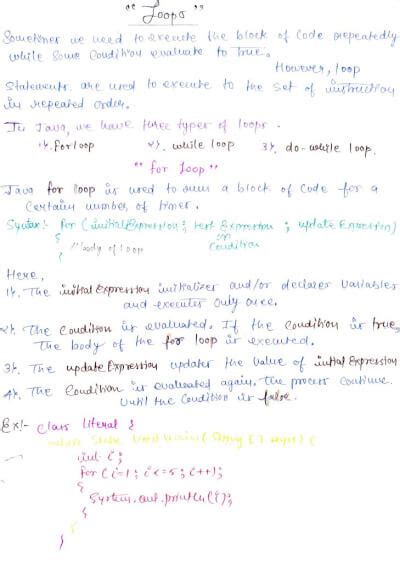 " Loops "
Sometimes we need to execute the block of code repeatedly
while some condition evaluate to true.
However, loop
Statements are used to execute to the set of instruction
in repeated order.
In Java, we have three types of loops.
1). for loop 2). while loop 3). do-while loop.
" for Loop "
Java for loop is used to run a block of code for a
certain number of times.
Syntax:- for (initialExpression; test Expression ; update Expression)
{ or
// body of loop Condition
}
Here,
1). The initial Expression initializes and/or declares variables
and executes only once.
2). The condition is evaluated. If the condition is true,
The body of the for loop is executed.
3). The update Expression updates the value of initial Expression
4). The Condition is evaluated again. The process continue
until the condition is false.
Ex:- class literal {
public static void main (String [ ] args) {
int i ;
for ( i=1 ; i<=5 ; i++);
{
System.out.println(i);
}
}
}